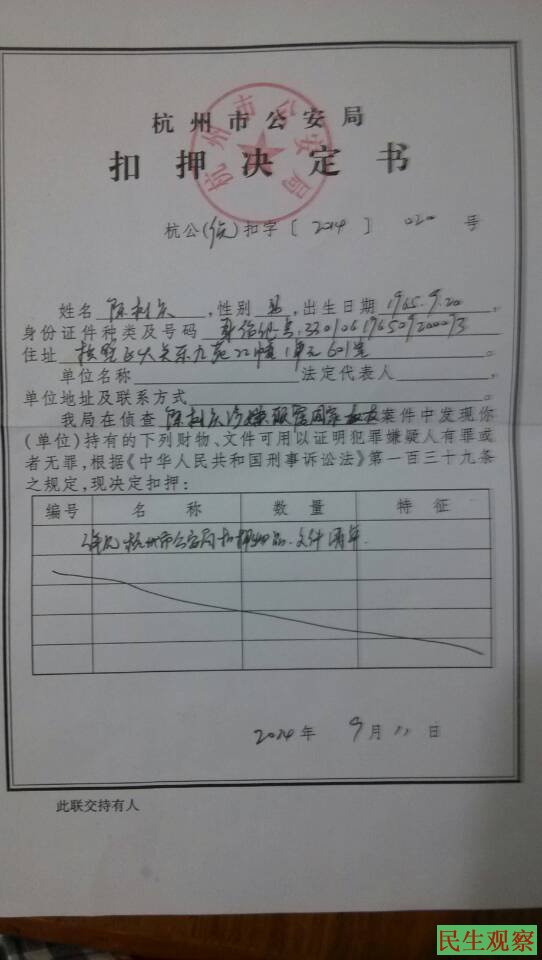 杭州市公安局
杭州市公安局
扣押决定书
杭公( )扣字〔2014〕020号
姓名 陈树庆,性别 男,出生日期 1965.9.20,
身份证件种类及号码 身份证号:330106196509200073
住址 拱墅区大关东九苑22幢1单元601室
单位名称 法定代表人 ,
单位地址及联系方式 。
我局在侦查 陈树庆涉嫌颠覆国家政权案件中发现你
(单位)持有的下列财物、文件可用以证明犯罪嫌疑人有罪或
者无罪,根据《中华人民共和国刑事诉讼法》第一百三十九条
之规定,现决定扣押:
编号 名称 数量 特征
详见杭州市公安局扣押物品、文件清单.
2014年 9月11日
此联交持有人
民生观察